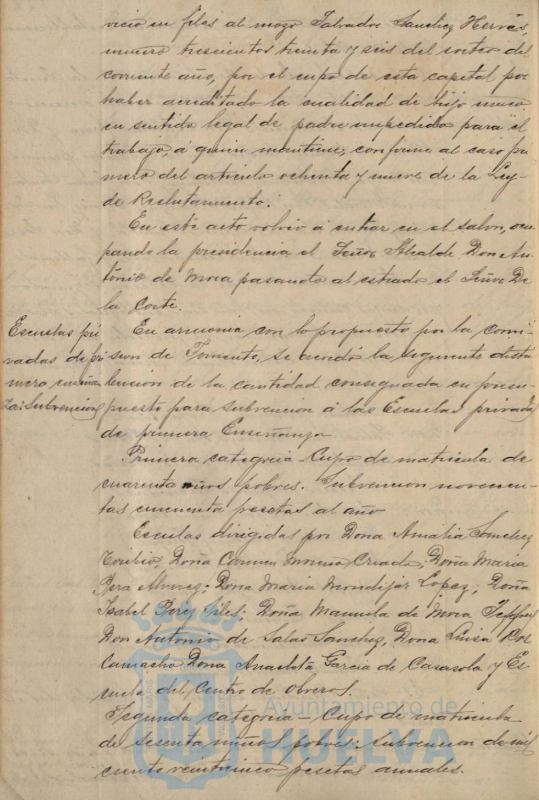 vicio en filas al mozo Salvador Sanchez Hervás,
numero trescientos treinta y seis del sorteo del
corriente año, por el cupo de esta capital por
haber acreditado la cualidad de hijo unico
en sentido legal de padre impedido para el
trabajo, á quien mantiene, conforme al caso pri
mero del articulo ochenta y nueve de la Ley
de Reclutamiento.
En este acto volvió á entrar en el salon, ocu
pando la presidencia el Señor Alcalde Don An
tonio de Mora pasando al estrado el Señor De
la Corte.
Escuelas pri
vadas de pri
mera enseñan
za: Subvencion
En armonia con lo propuesto por la Comi
sion de Fomento, se acordó la siguiente distri
bucion de la cantidad consignada en presu
puesto para subvencion á las Escuelas privadas
de primera Enseñanza
Primera categoria Cupo de matricula de
cuarenta niños pobres. Subvencion novecien
tas cincuenta pesetas al año
Escuelas dirigidas por Doña Amalia Sanchez
Toribio, Doña Carmen Moreno Criado, Doña Maria
Pera Alvarez; Doña Maria Mondejar Lopez; Doña
Isabel Perez Giles; Doña Manuela de Mora
Don Antonio de Salas Sanchez, Doña Luisa
Camacho Doña Anacleta Garcia de Casasola y Es
cuela del Centro de Obreros.
Segunda categoria - Cupo de matricula
de sesenta niños pobres. Subvencion de mil
ciento veinticinco pesetas anuales.
Ayuntamiento de
HUELVA